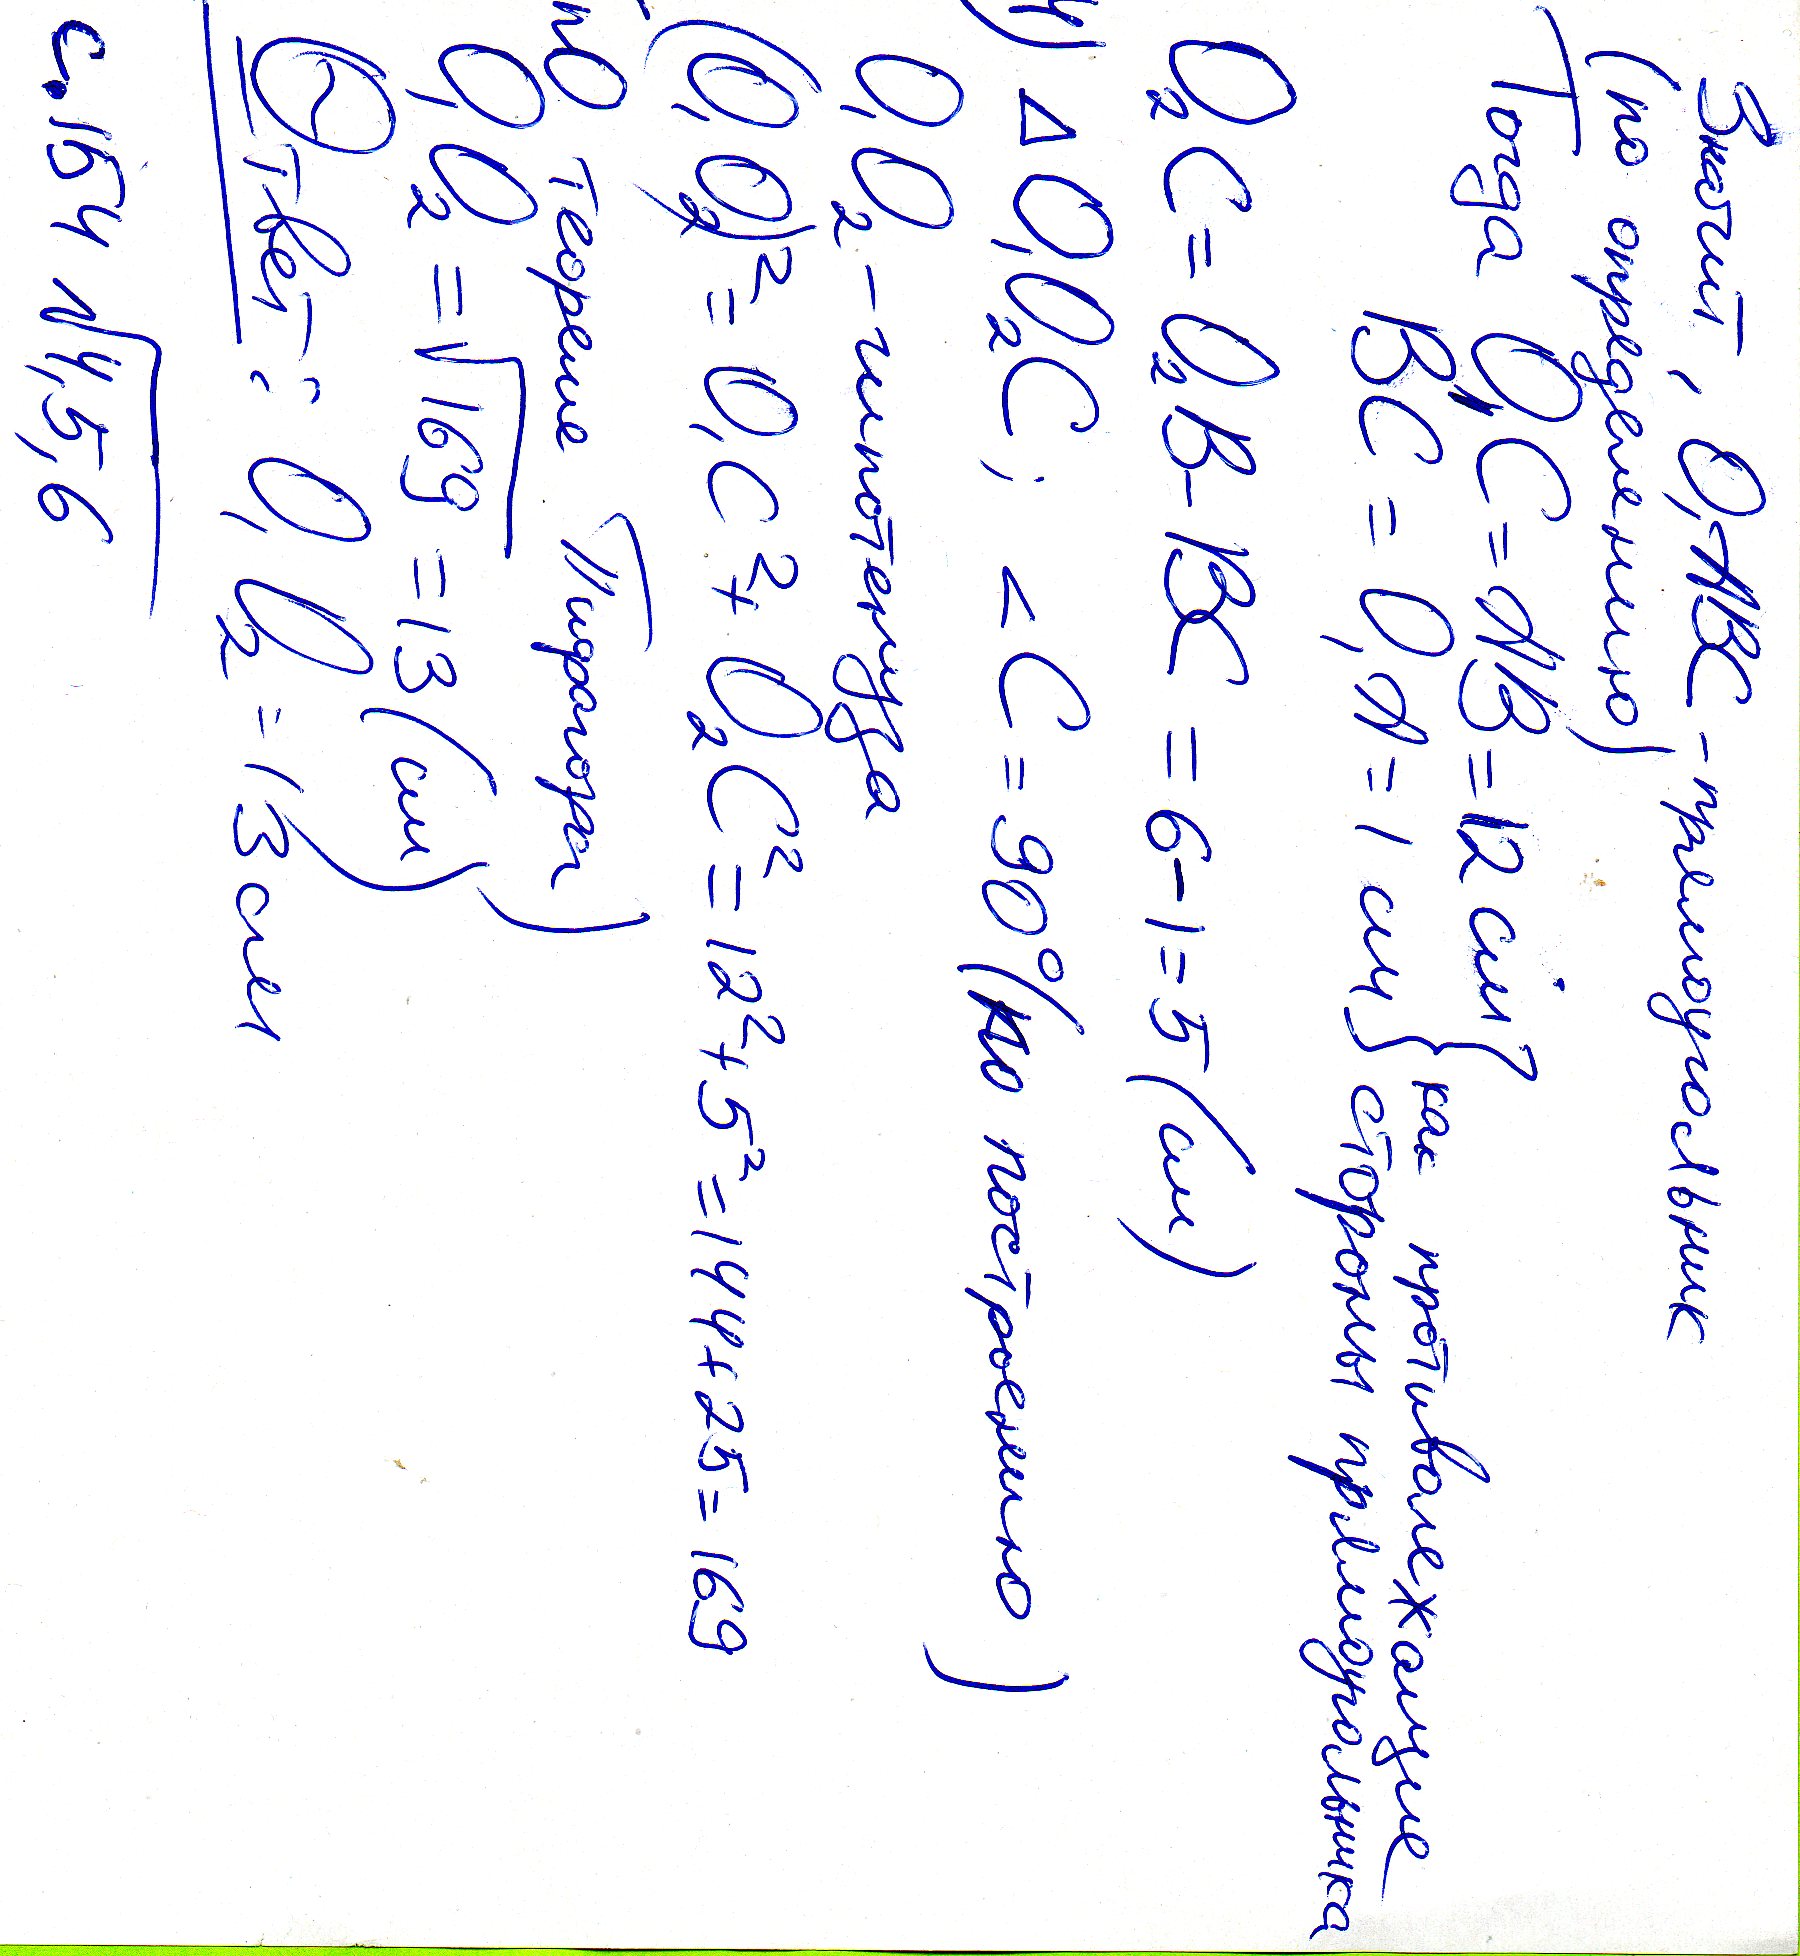 Значит, O₁ABC - прямоугольник
(по определению)
Тогда O₁C = AB = 12 см } как противолежащие
BC = O₁A = 1 см } стороны прямоугольника
O₂C = O₂B - BC = 6 - 1 = 5 (см)
4) Δ O₁O₂C; <C = 90° (по построению)
O₁O₂ - гипотенуза
(O₁O₂)² = O₁C² + O₂C² = 12² + 5² = 144 + 25 = 169
(по теореме Пифагора)
O₁O₂ = √169 = 13 (см)
Ответ: O₁O₂ = 13 см
с. 154 √4,5,6